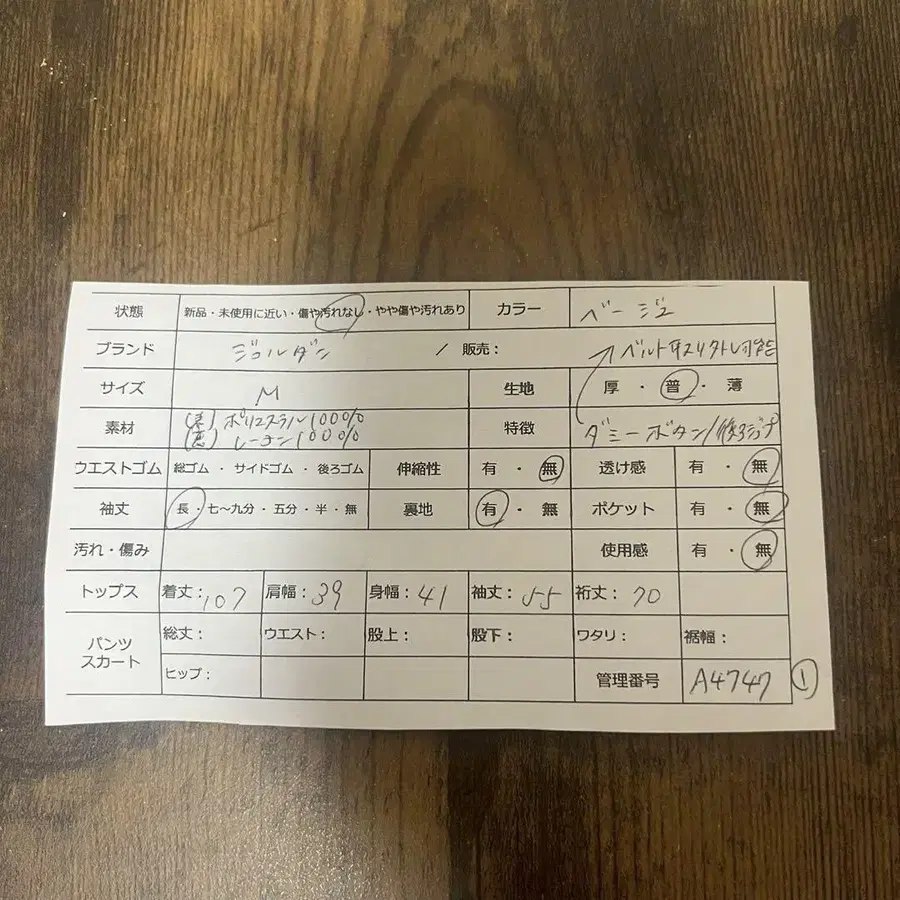 状態 新品・未使用に近い・傷や汚れなし・やや傷や汚れあり カラー ベージュ
ブランド ジョルダン / 販売: ベルト取り外し可能
サイズ M 生地 厚・普・薄
素材 (表)ポリエステル100% 特徴 ダミーボタン/後ろジップ
(裏)レーヨン100%
ウエストゴム 総ゴム・サイドゴム・後ろゴム 伸縮性 有・無 透け感 有・無
袖丈 長・七〜九分・五分・半・無 裏地 有・無 ポケット 有・無
汚れ・傷み 使用感 有・無
トップス 着丈:107 肩幅:39 身幅:41 袖丈:55 裄丈:70
パンツ 総丈: ウエスト: 股上: 股下: ワタリ: 裾幅:
スカート ヒップ: 管理番号 A4747 ①